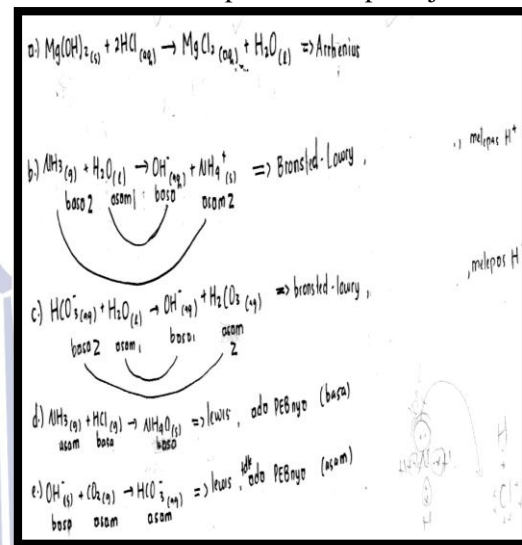 a.) Mg(OH)2(s) + 2HCl(aq) → MgCl2(aq) + H2O(l) => Arrhenius
., melepas H+
b.) NH3(g) + H2O(l) → OH-(aq) + NH4+(s) => Bronsted-Lowry,
basa2 asam1 basa asam2
, melepas H
c.) HCO3-(aq) + H2O(l) → OH-(aq) + H2CO3(aq) => bronsted-lowry,
basa2 asam1 basa1 asam
2
d.) NH3(g) + HCl(g) → NH4Cl(s) => lewis, ada PEBnya (basa)
asam basa basa
e.) OH-(s) + CO2(g) → HCO3-(aq) => lewis, tdk ada PEBnya (asam)
basa asam asam
H
Cl
H